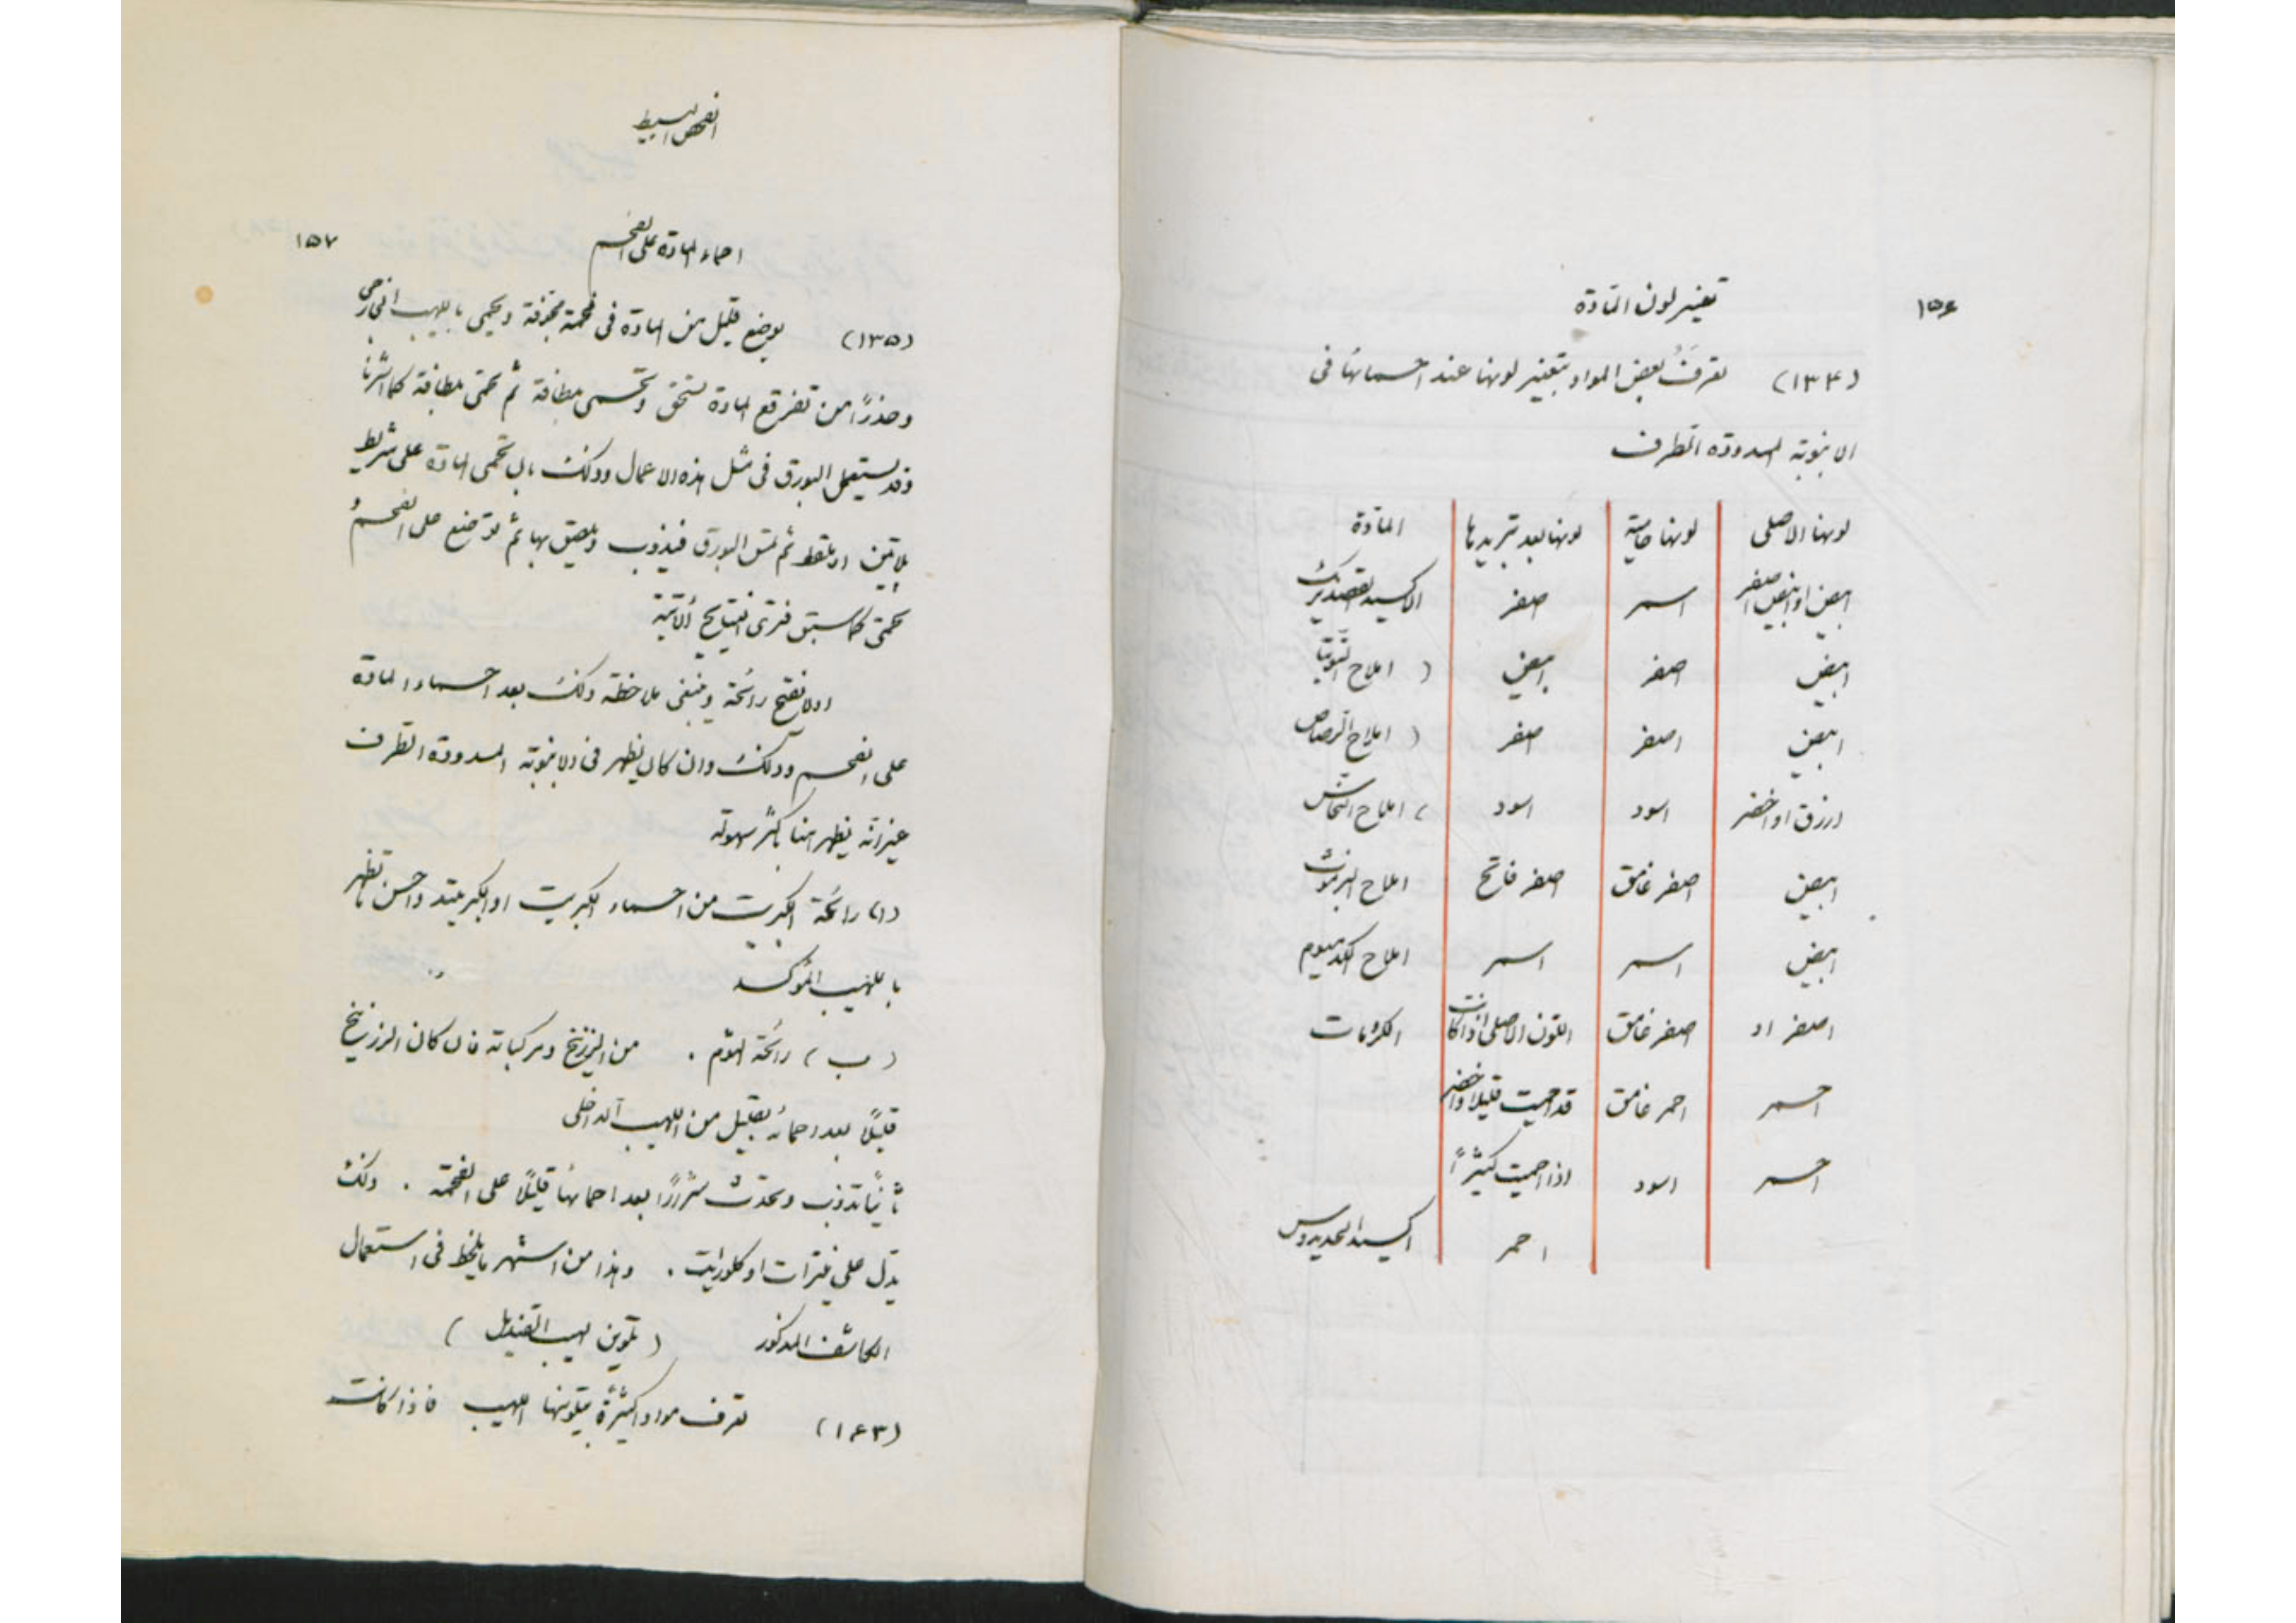 ١٥٦
تغيير لون المادة
(١٣٤) تعرف بعض المواد بتغيير لونها عند احمائها فى
الانبوبة المسدودة الطرف
لونها الاصلى لونها حامية لونها بعد تبريدها المادة
ابيض او ابيض اصفر اسمر اصفر الاكسيد القصديريك
ابيض اصفر ابيض ( املاح التوتيا
ابيض اصفر اصفر ( املاح الرصاص
ازرق او اخضر اسود اسود ( املاح النحاس
ابيض اصفر غامق اصفر فاتح املاح البزموث
ابيض اسمر اسمر املاح الكدميوم
اصفر او اصفر غامق اللون الاصلى اذا كانت الكرومات
احمر احمر غامق قد احميت قليلا واخضر
احمر اسود اذا احميت كثيرًا
احمر اكسيد الحديدوس
الفحص البسيط
١٥٧
احماء المادة على الفحم
(١٣٥) يوضع قليل من المادة فى فحمة مجوفة ويحمى باللهيب الخارجى
وحذرًا من تفرقع المادة تسحق وتحمى بلطافة ثم تحمى بلطافة كما اشرنا
وقد يستعمل البورق فى مثل هذه الاعمال وذلك بان تحمى المادة على شريط
بلاتين او ملقط ثم تمس البورق فيذوب ويلصق بها ثم توضع على الفحم
تحمى كما سبق فترى النتايج الآتية
اولا تفتح رائحة وينبغى ملاحظة ذلك بعد احماء المادة
على الفحم وذلك وان كان يظهر فى الانبوبة المسدودة الطرف
غير انه يظهر هنا باكثر سهولة
(ا) رائحة الكبريت من احماء الكبريت او الكبريتيد واحسن ما تظهر
باللهيب المؤكسد
(ب) رائحة الثوم . من الزرنيخ ومركباته فان كان الزرنيخ
قليلًا بعد احمائه بقليل من اللهيب الداخلى
ثانيًا تذوب وتحدث شررًا بعد احمائها قليلًا على الفحمة . وذلك
يدل على نيترات او كلورات . وهذا من اشهر ما يلحظ فى استعمال
الكاشف المذكور ( تلوين لهيب القنديل )
(١٤٣) تعرف مواد كثيرة بتلوينها اللهيب فاذا كانت